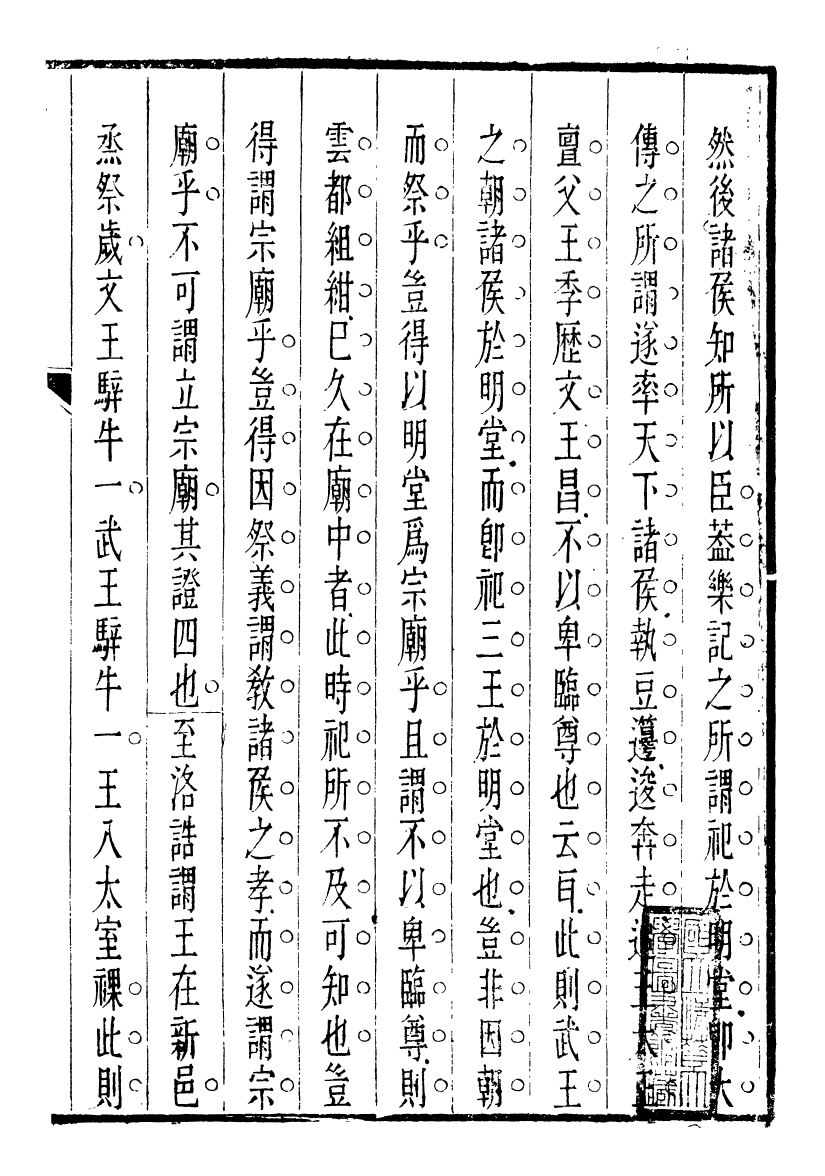 然後諸侯知所以臣葢樂記之所謂祀於明堂卽大
傳之所謂遂率天下諸侯執豆籩逡奔走追王大王
亶父王季歷文王昌不以卑臨尊也云耳此則武王
之朝諸侯於明堂而卽祀三王於明堂也豈非因朝
而祭乎豈得以明堂爲宗廟乎且謂不以卑臨尊則
雲都組紺巳久在廟中者此時祀所不及可知也豈
得謂宗廟乎豈得因祭義謂敎諸侯之孝而遂謂宗
廟乎不可謂立宗廟其證四也至洛誥謂王在新邑
烝祭歲文王騂牛一武王騂牛一王入太室祼此則